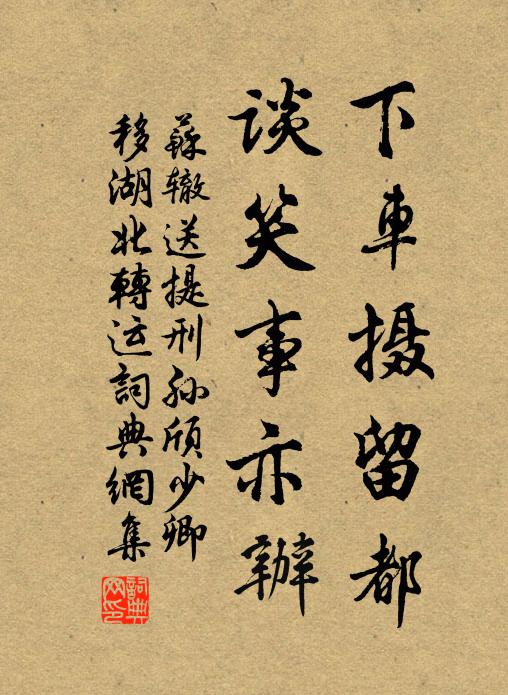 下車摄留都
談笑事亦辦
蘇辙送提刑孙頎少卿
移湖北轉运詞典網集
詞典網印